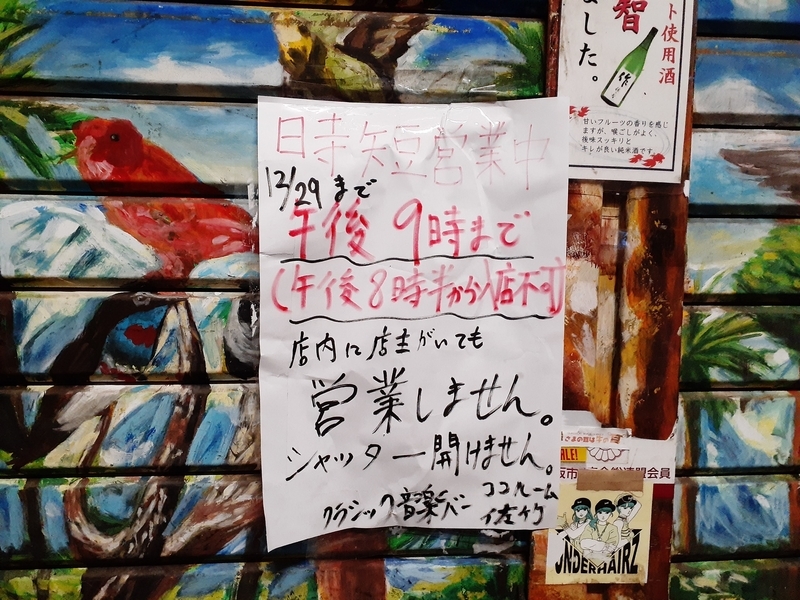 時短営業中
12/29まで
午後9時まで
(午後8時半から入店不可)
店内に店主がいても
営業しません。
シャッター開けません。
クラシック音楽バー
ココルーム
佐竹
智
ました。
ト使用
酒
作
甘いフルーツの香りを感じ
ますが、喉ごしがよく、
後味スッキリと
キレが良い純米酒です。
ALE!
会員
UNDERHAIRZ